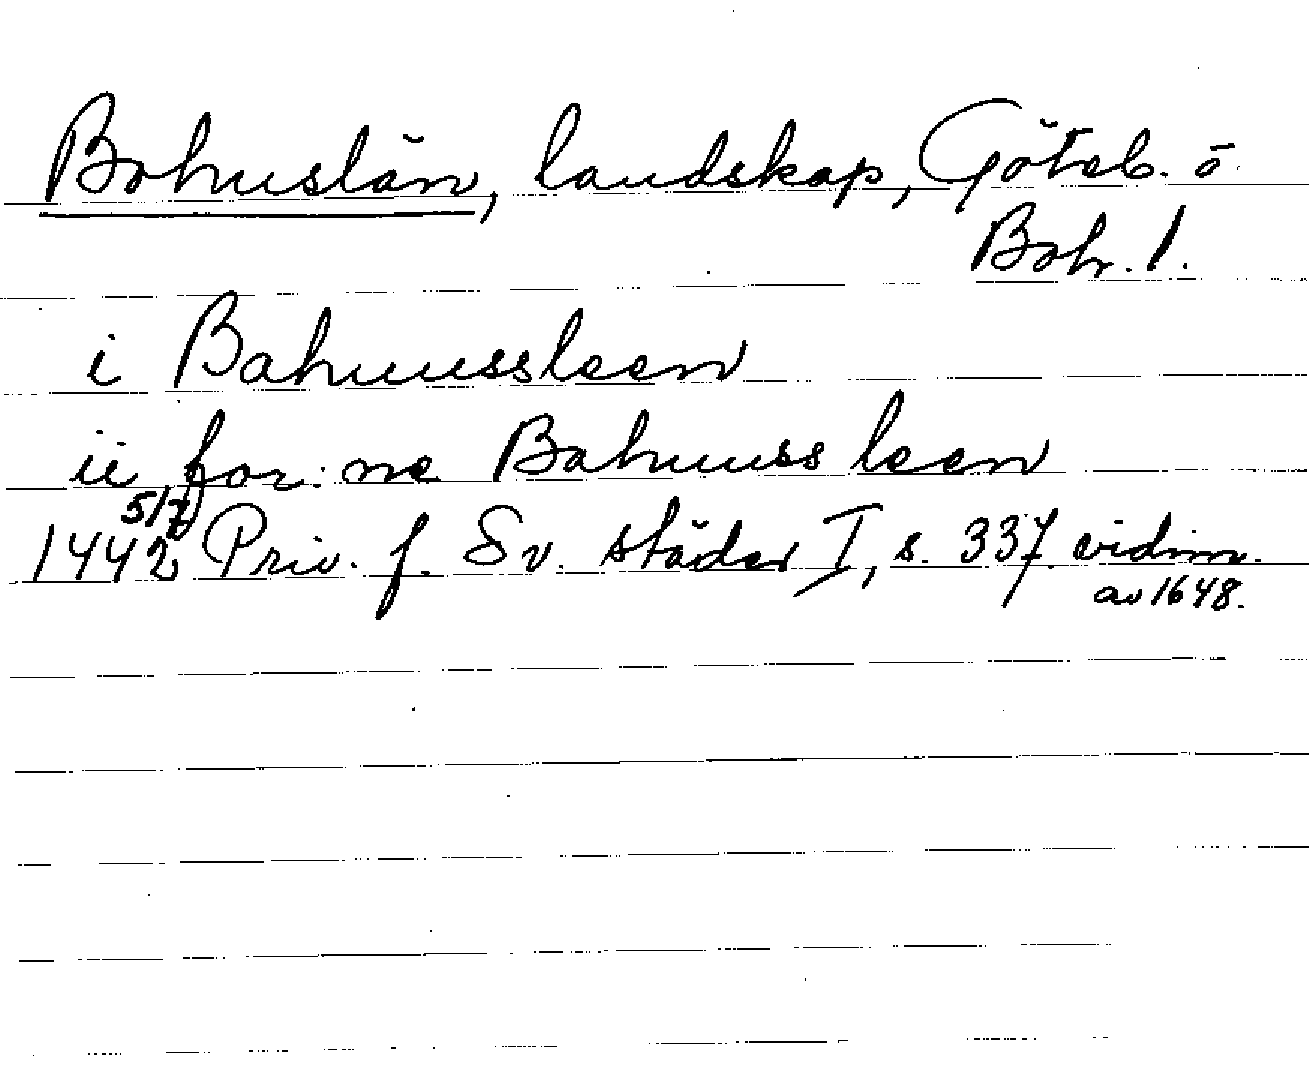 Bohuslän, landskap, Göteb. o.
Boh. l.
i Bahuussleen
ii for: ne Bahuuss leen
1442 5/7) Priv. f. Sv. städer I, s. 337 vidim.
av 1648.